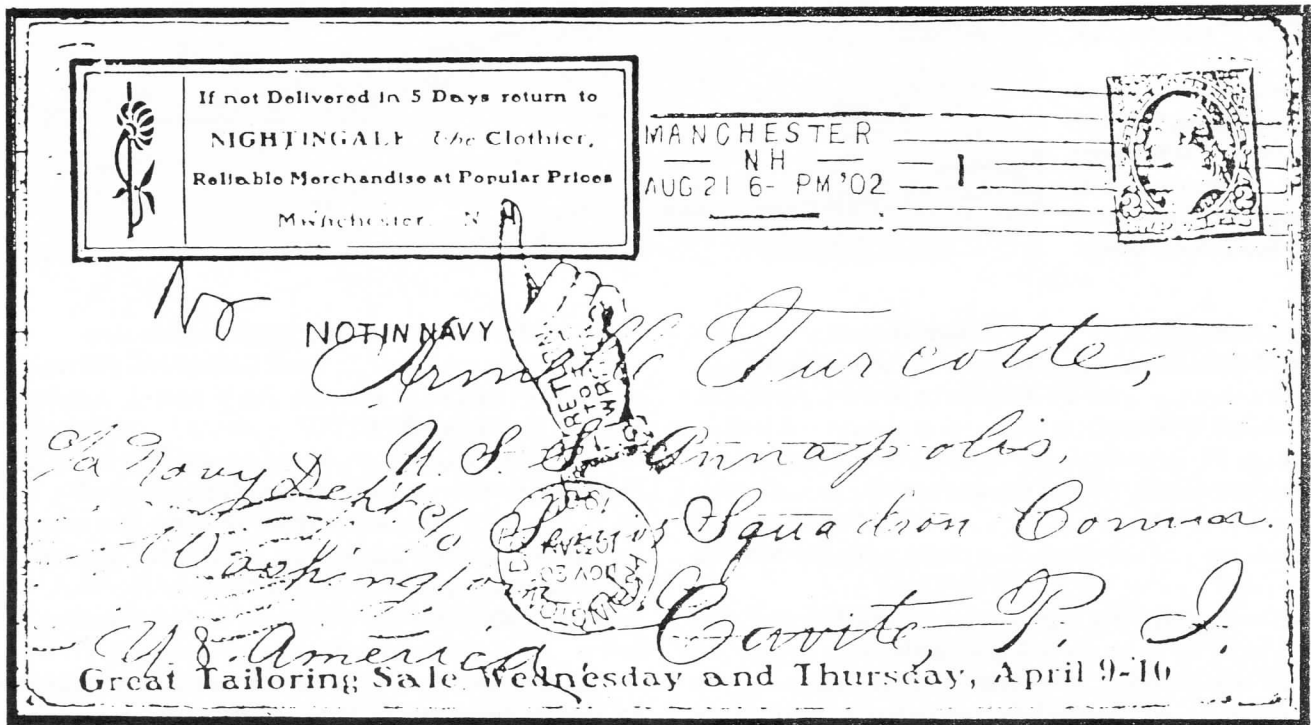 If not Delivered in 5 Days return to
NIGHTINGALE The Clothier,
Reliable Merchandise at Popular Prices
Manchester N H
MANCHESTER
NH
AUG 21 6- PM '02
1
2 2
NOT IN NAVY
RETURN
TO
WRITER
Turcotte,
U. S. S. Annapolis,
c/o Navy Dept
c/o Squadron
Washington
Cavite, P. I.
U S. America
WASHINGTON
NOV 20
1902
Great Tailoring Sale Wednesday and Thursday, April 9-10